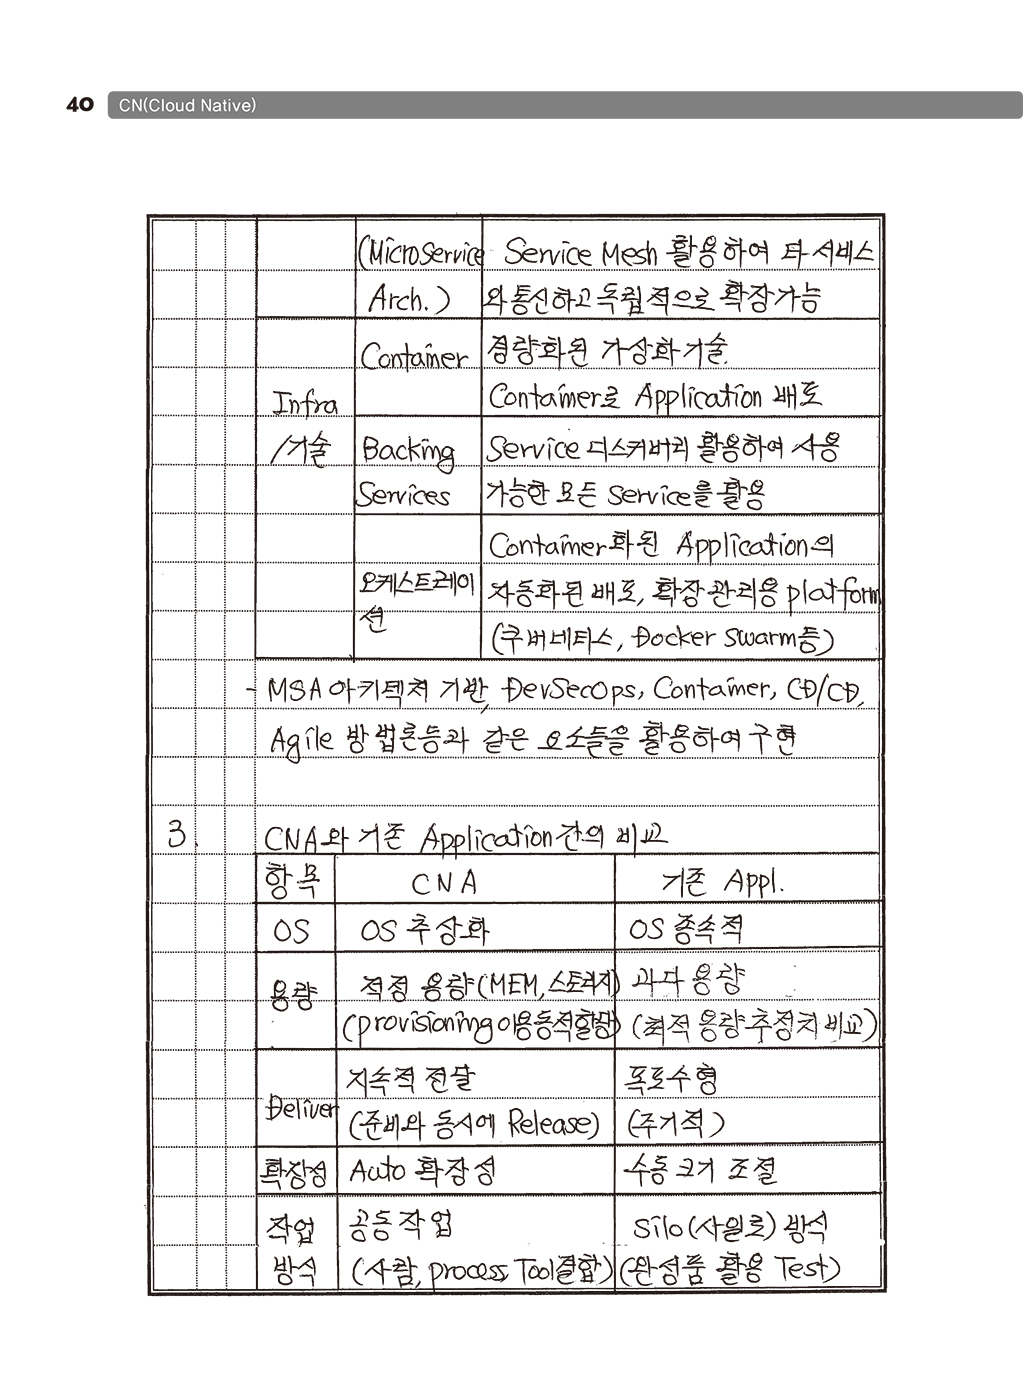 40 CN(Cloud Native)
(Microservice Service Mesh 활용하여 타 서비스
Arch.) 와 통신하고 독립적으로 확장가능
Container 경량화된 가상화기술.
Infra Container로 Application 배포
/기술 Backing Service 디스커버리 활용하여 사용
Services 가능한 모든 Service를 활용
Container화된 Application의
오케스트레이 자동화된 배포, 확장 관리용 platform
션 (쿠버네티스, Docker Swarm등)
- MSA 아키텍처 기반, DevSecOps, Container, CD/CD,
Agile 방법론등과 같은 요소들을 활용하여 구현
3. CNA와 기존 Application간의 비교
항목 CNA 기존 Appl.
OS OS 추상화 OS 종속적
용량 적정 용량(MEM, 스토리지) 과다 용량
(provisioning이용동적할당) (최적 용량 추정치 비교)
Deliver 지속적 전달 폭포수형
(준비와 동시에 Release) (주기적)
확장성 Auto 확장성 수동 크기 조절
작업 공동작업 Silo(사일로) 방식
방식 (사람, process Tool결합) (완성품 활용 Test)